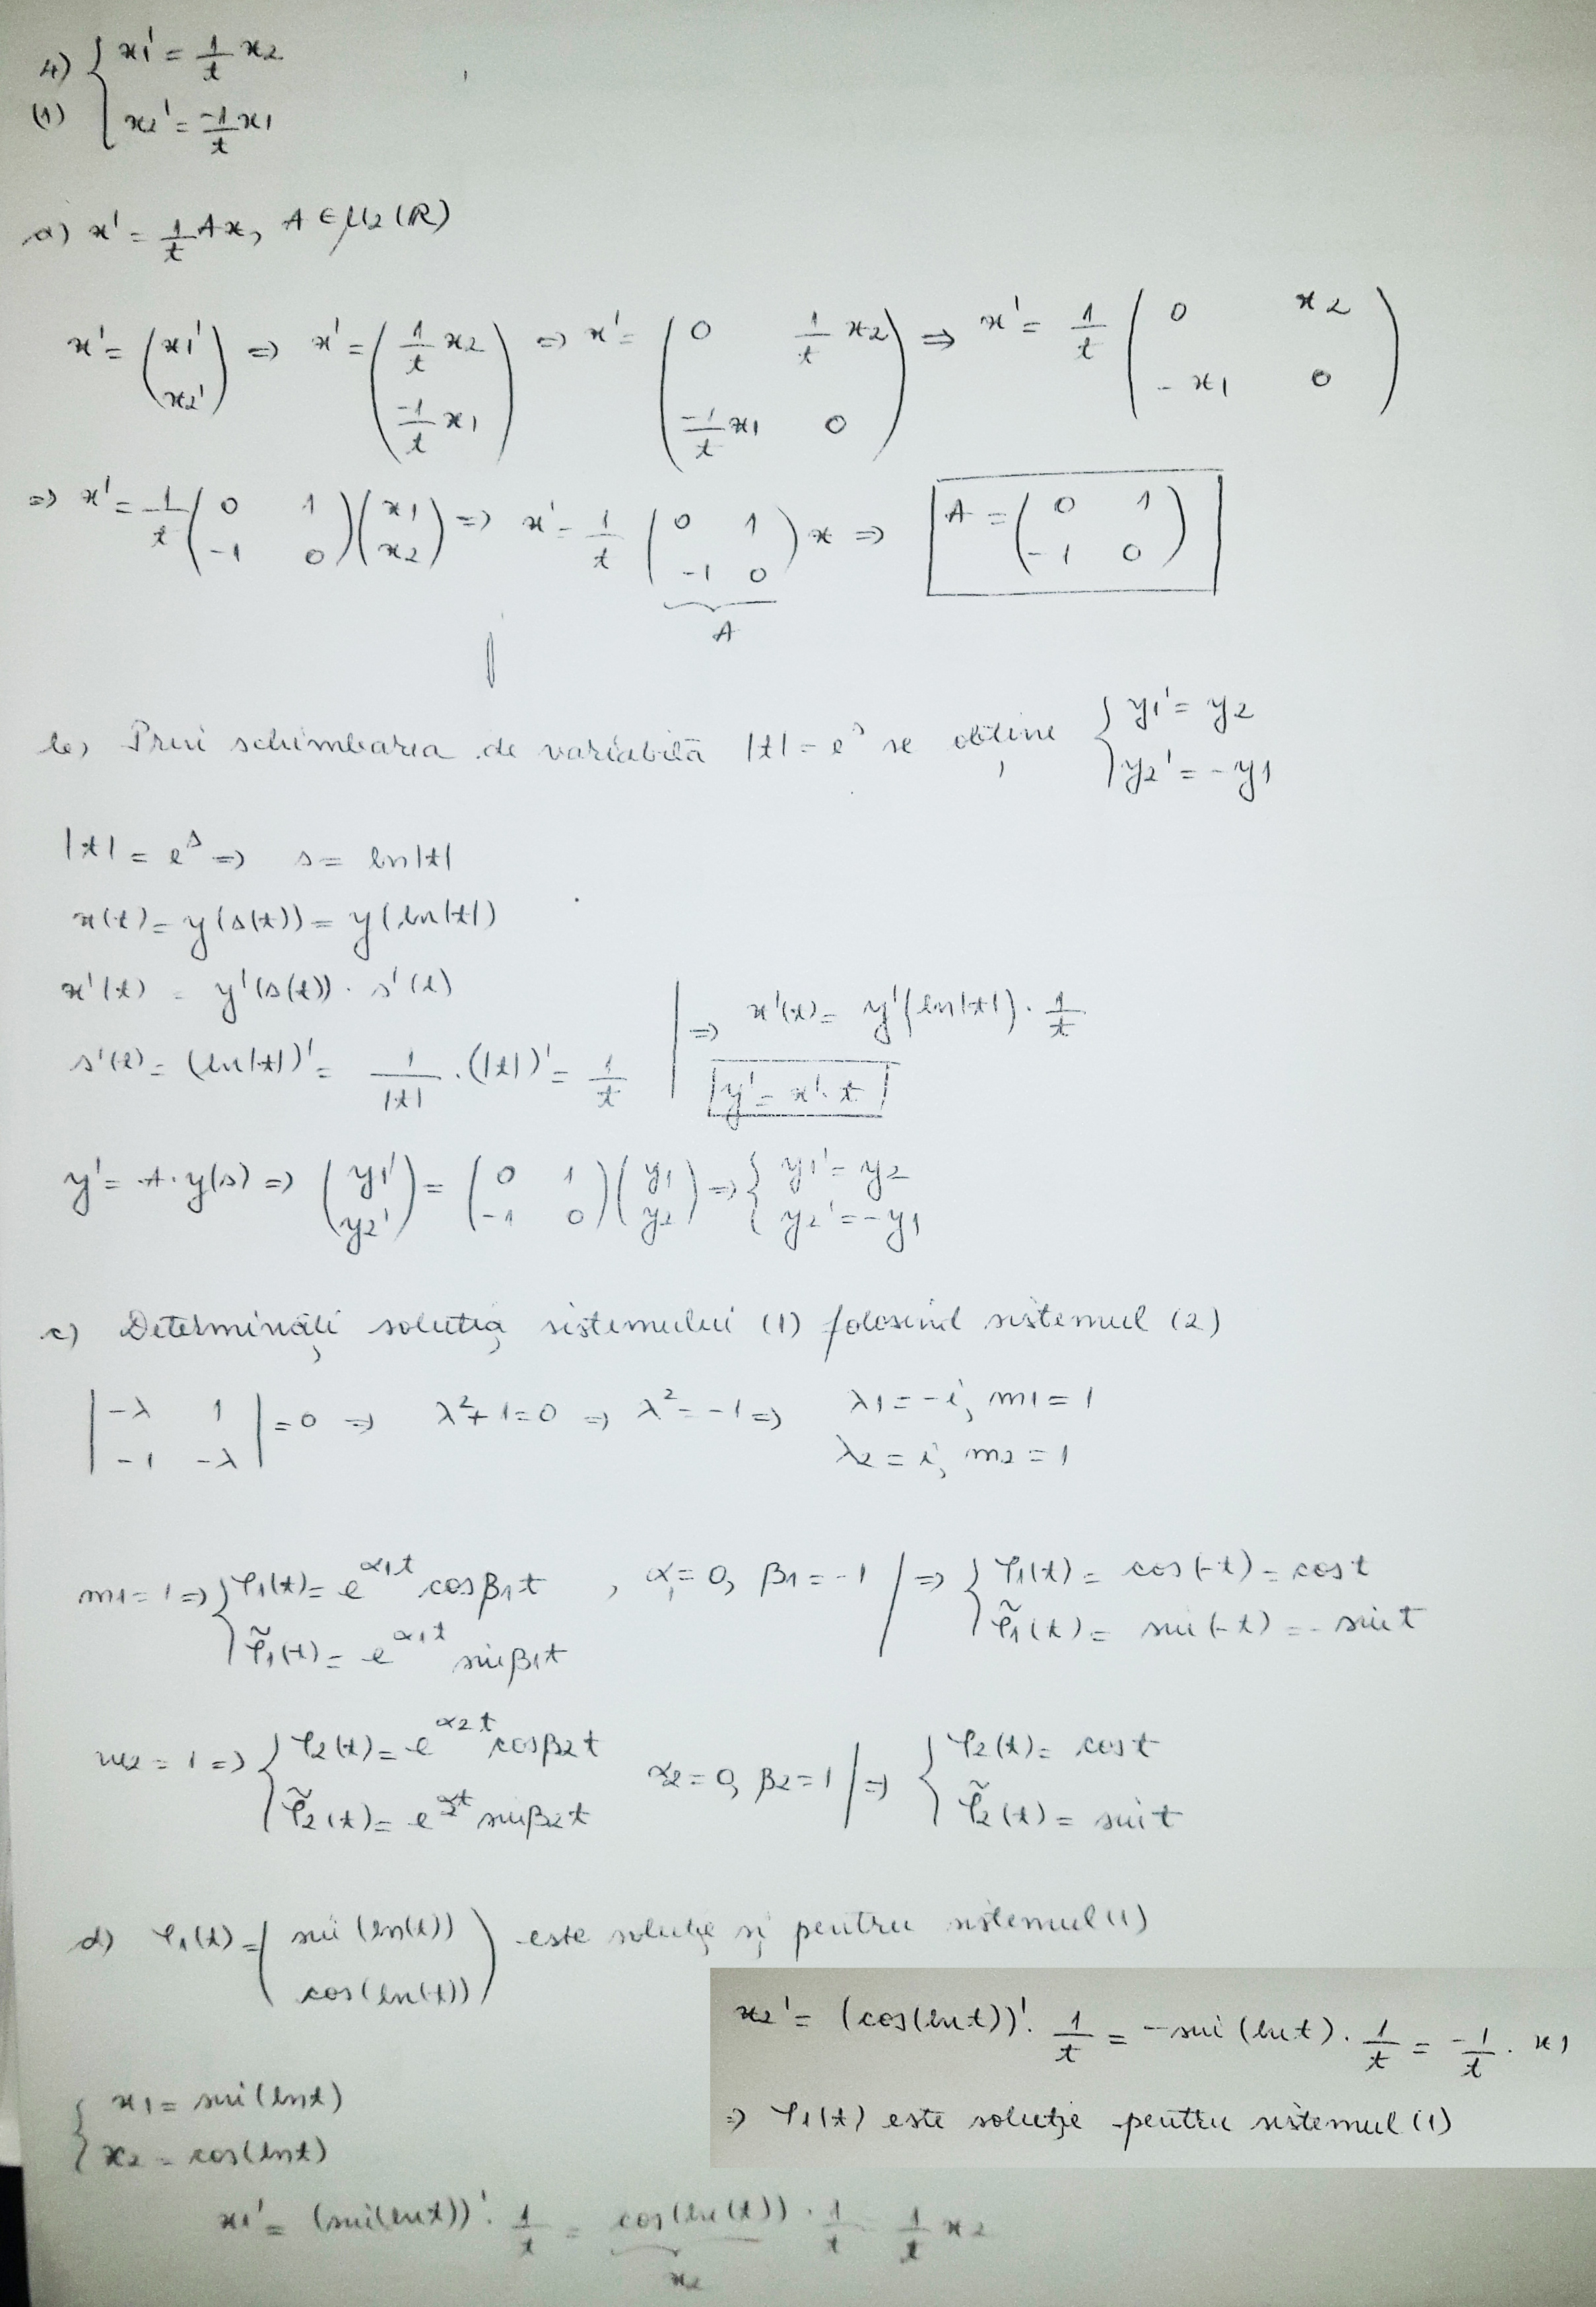 4) { x1' = 1/t x2
(1) { x2' = -1/t x1
a) x' = 1/t Ax, A ∈ M2(R)
x' = (x1' ; x2') => x' = (1/t x2 ; -1/t x1) => x' = (0 1/t x2 ; -1/t x1 0) => x' = 1/t (0 x2 ; -x1 0)
=> x' = 1/t (0 1 ; -1 0)(x1 ; x2) => x' = 1/t (0 1 ; -1 0) x => A = (0 1 ; -1 0)
A
b) Prin schimbarea de variabilă |t| = e^s se obține { y1' = y2 ; y2' = -y1
|t| = e^s => s = ln|t|
x(t) = y(s(t)) = y(ln|t|)
x'(t) = y'(s(t)) · s'(t)
s'(t) = (ln|t|)' = 1/|t| · (|t|)' = 1/t | => x'(t) = y'(ln|t|) · 1/t
y' = x' · t
y' = A · y(s) => (y1' ; y2') = (0 1 ; -1 0)(y1 ; y2) => { y1' = y2 ; y2' = -y1
c) Determinați soluția sistemului (1) folosind sistemul (2)
|-λ 1 ; -1 -λ| = 0 => λ² + 1 = 0 => λ² = -1 => λ1 = -i, m1 = 1
λ2 = i, m2 = 1
m1 = 1 => { φ1(t) = e^α1t cosβ1t ; φ̃1(t) = e^α1t sinβ1t , α1 = 0, β1 = -1 | => { φ1(t) = cos(-t) = cost ; φ̃1(t) = sin(-t) = -sint
m2 = 1 => { φ2(t) = e^α2t cosβ2t ; φ̃2(t) = e^α2t sinβ2t α2 = 0, β2 = 1 | => { φ2(t) = cost ; φ̃2(t) = sint
d) φ1(t) = (sin(ln(t)) ; cos(ln(t))) este soluție și pentru sistemul (1)
{ x1 = sin(lnt)
{ x2 = cos(lnt)
x1' = (sin(lnt))' · 1/t = cos(ln(t)) · 1/t = 1/t x2
x2
x2' = (cos(lnt))' · 1/t = -sin(lnt) · 1/t = -1/t · x1
=> φ1(t) este soluție pentru sistemul (1)